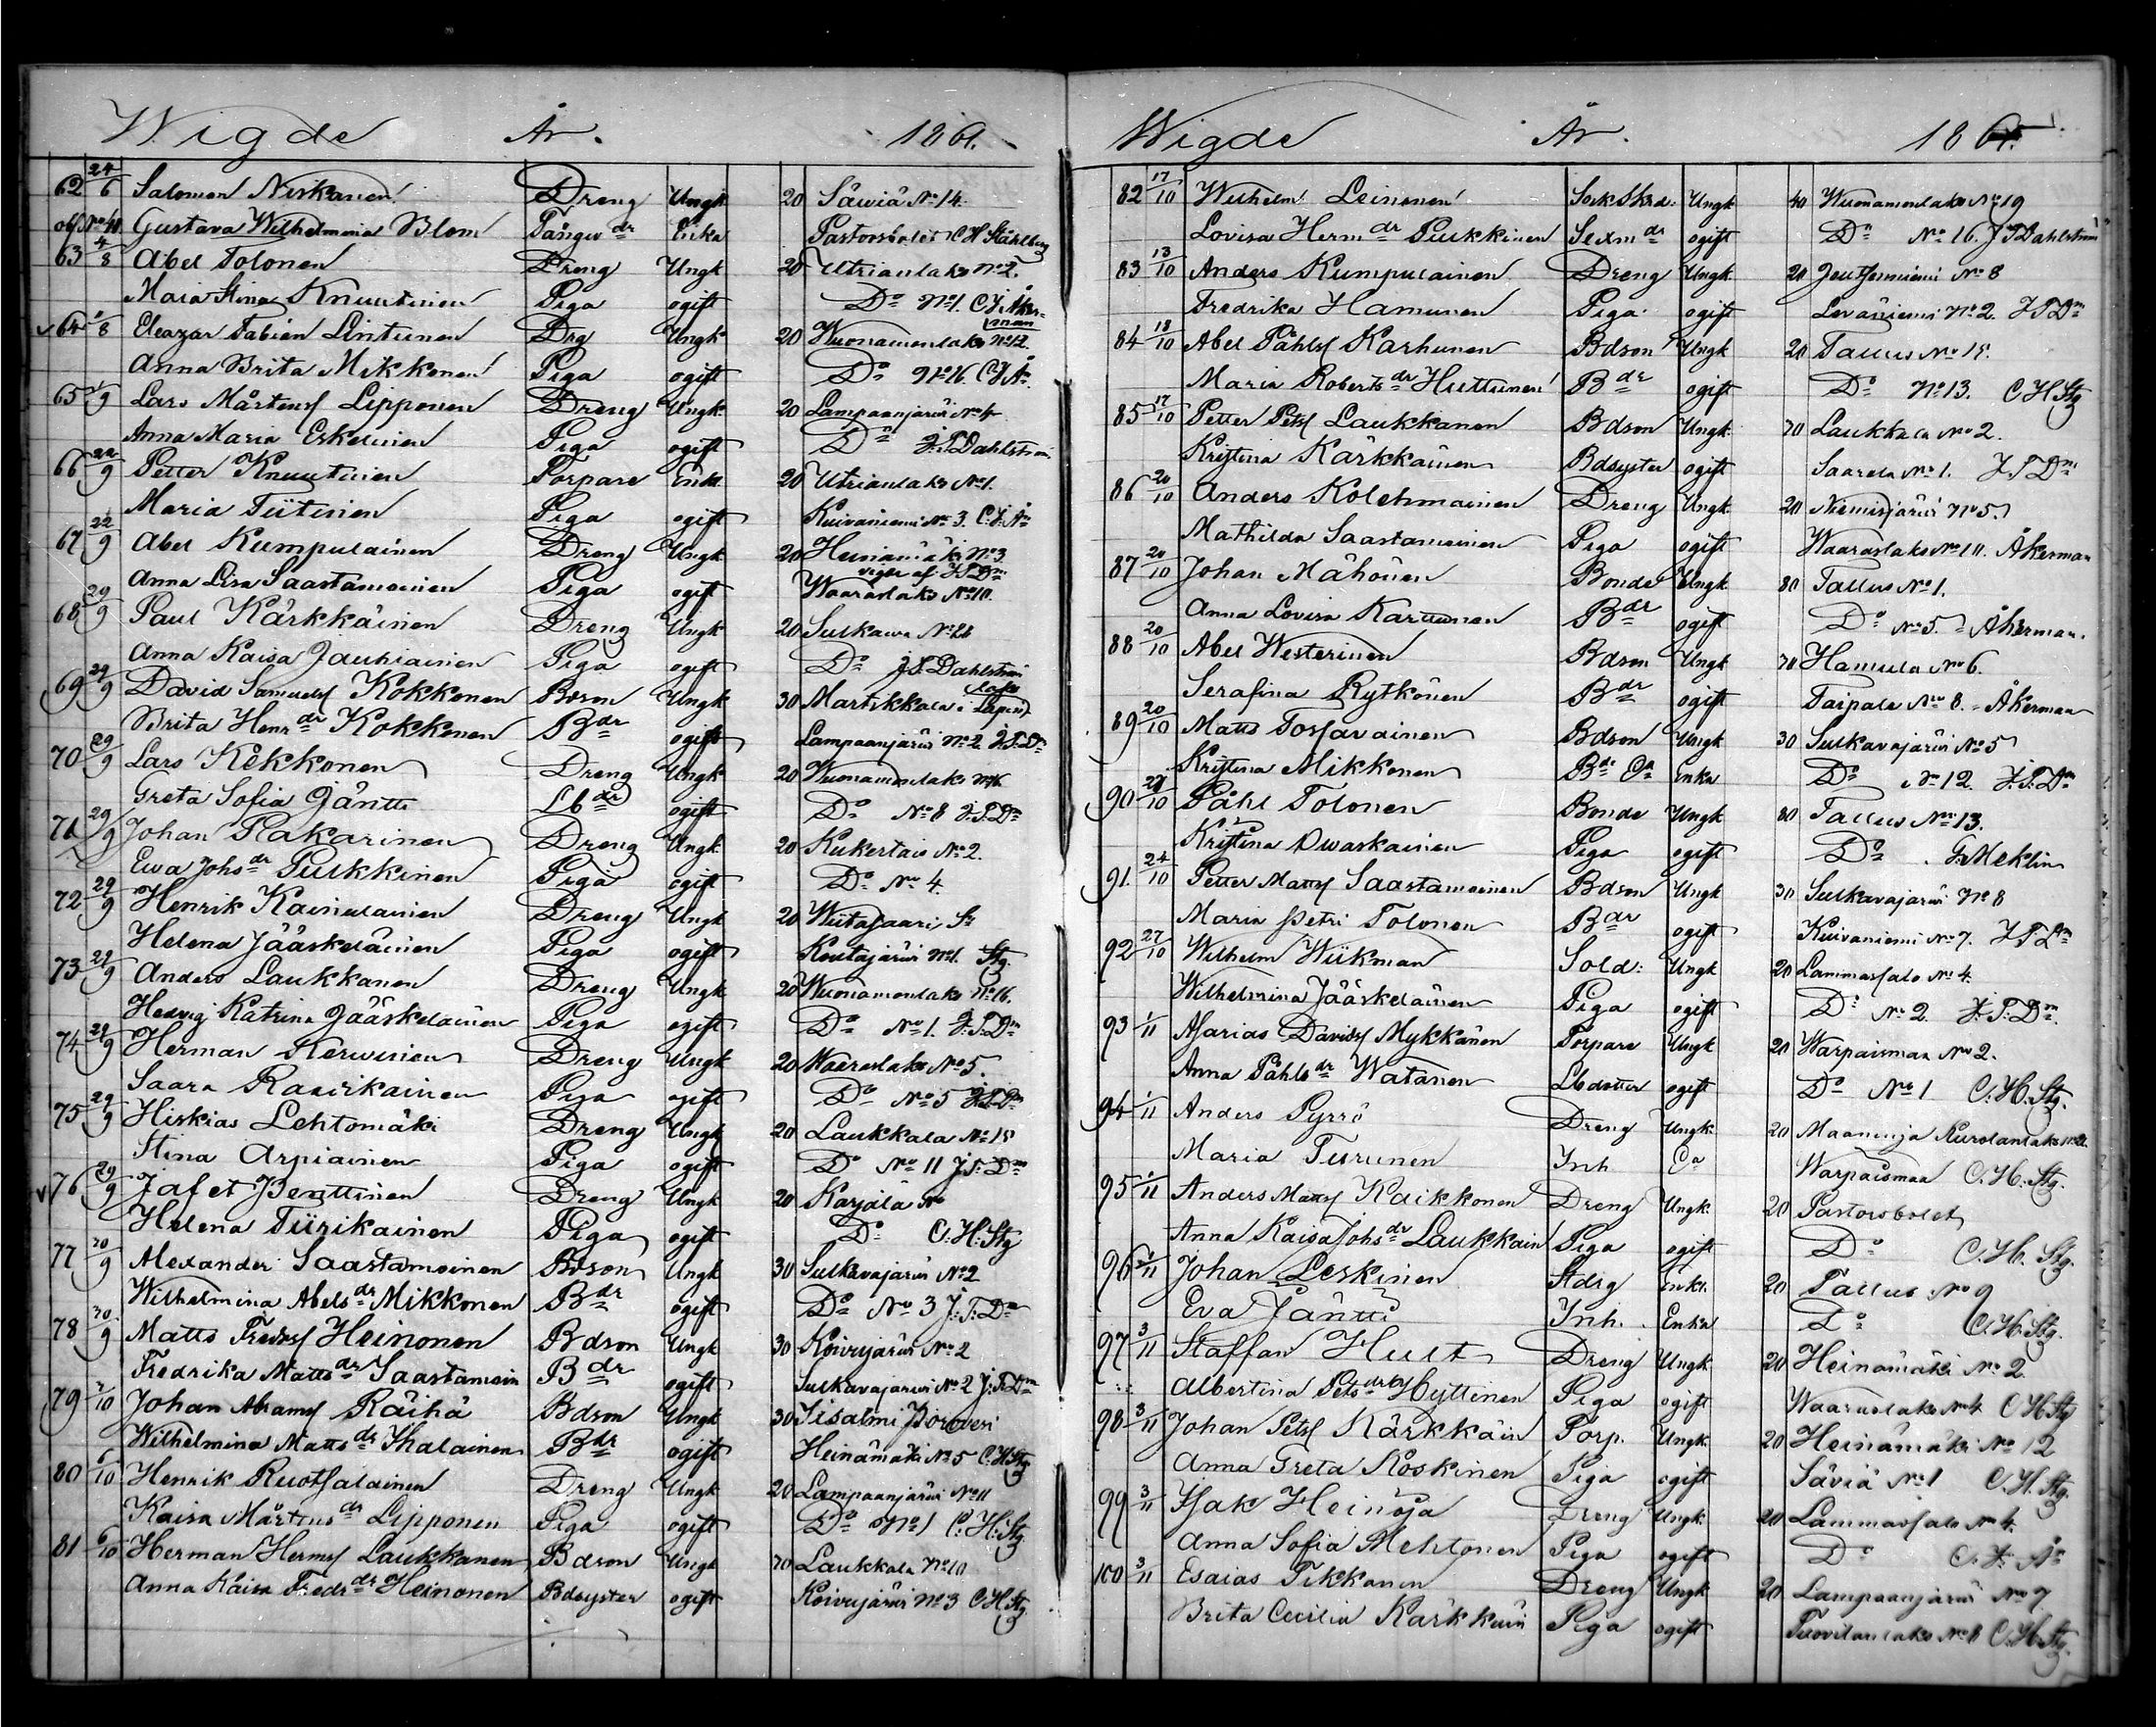 Wigde År. 1861.
62 24/6 Salomon Niskanen Dreng Ungk 20 Säwiä No 14.
Gustava Wilhelmina Blom Enka Pastorsbolet C H Ståhlberg
63 4/8 Abel Tolonen Dreng Ungk 20 Utrianlaks No 2.
Maia Stina Knuutinen Piga ogift Do No 1. C J Åkerman
64 /8 Eleazar Fabian Lintunen Drg Ungk 20 Wuonamonlaks No 12.
Anna Brita Mikkonen Piga ogift Do No 16. C J Ån
65 /9 Lars Mårtens Lipponen Dreng Ungk. 20 Lampaanjärvi No 4
Anna Maria Eskelinen Piga ogift Do J. T. Dahlström
66 22/9 Petter Knuutinen Torpare Enkl 20 Utrianlaks No 1.
Maria Tiitinen Piga ogift Kuivaniemi No 3. C. J. Ån
67 22/9 Abel Kumpulainen Dreng Ungk 20 Heinämäki No 3
vigde af J T Dm
Anna Lisa Saastamoinen Piga ogift Waaraslaks No 10.
68 29/9 Paul Kärkkäinen Dreng Ungk 20 Sulkawa No 26
Anna Kaisa Jauhiainen Piga ogift Do J. T. Dahlström
69 29/9 David Samuels Kokkonen Bdson Ungk 30 Martikkala i Lapin
Brita Henr dr Kokkonen B dr ogift Lampaanjärvi No 2 J. T. Dm
70 29/9 Lars Kekkonen Dreng Ungk 20 Wuonamonlaks No 16
Greta Sofia Jäntti Lb dr ogift Do No 8 J. T. Dm
71 29/9 Johan Rakarinen Dreng Ungk. 20 Kukertais No 2.
Ewa Johs dr Pulkkinen Piga ogift Do No 4
72 29/9 Henrik Kainulainen Dreng Ungk 20 Wiitasaari Sn
Helena Jääskeläinen Piga ogift Koutajärvi No 1. Stg.
73 29/9 Anders Laukkanen Dreng Ungk 20 Wuonamonlaks No 16.
Hedvig Katrina Jääskeläinen Piga ogift Do No 1. J. T. Dm
74 29/9 Herman Kerwinen Dreng Ungk 20 Waaraslaks No 5.
Saara Rasirikainen Piga ogift Do No 5 J. T. Dm
75 29/9 Hiskias Lehtomäki Dreng Ungk 20 Laukkala No 15
Stina Arpiainen Piga ogift Do No 11 J. T. Dm
76 29/9 Jafet Penttinen Dreng Ungk 20 Karjala No
Helena Tiirikainen Piga ogift Do C. H. Stg
77 30/9 Alexander Saastamoinen Bdson Ungk 30 Sulkavajärvi No 2
Wilhelmina Abels dr Mikkonen B dr ogift Do No 3 J. T. Dm
78 30/9 Matts Fredrs Heinonen Bdson Ungk 30 Koivujärvi No 2
Fredrika Matts dr Saastamoin B dr ogift Sulkavajärvi No 2 J. T. Dm
79 /10 Johan Abrams Räihä Bdson Ungk 30 Iisalmi Poroveri
Wilhelmina Matts dr Ihalainen B dr ogift Heinämäki No 5 C. H. Stg
80 6/10 Henrik Ruotsalainen Dreng Ungk 20 Lampaanjärvi No 11
Kaisa Mårtens dr Lipponen Piga ogift Do No 1 C. H. Stg
81 6/10 Herman Herms Laukkanen Bdson Ungk 70 Laukkala No 10
Anna Kaisa Fredr dr Heinonen Bdsyster ogift Koivujärvi No 3 C H Stg
Wigde År. 1861.
82 17/10 Wilhelm Leinonen Sockskrd. Ungk 40 Wuonamonlaks No 19
Lovisa Herm dr Pulkkinen Sexm dr ogift Do No 16. J T Dahlström
83 13/10 Anders Kumpulainen Dreng Ungk 20 Jeutsenniemi No 8
Fredrika Hamunen Piga ogift Leväniemi No 2. J T Dm
84 18/10 Abel Påhls Karhunen Bdson Ungk 20 Tallus No 15.
Maria Roberts dr Huttunen B dr ogift Do No 13. C H Stg
85 17/10 Petter Pets Laukkanen Bdson Ungk. 70 Laukkala No 2.
Kristina Kärkkäinen Bdsyster ogift Saarela No 1. J. T Dm
86 20/10 Anders Kolehmainen Dreng Ungk 20 Niemisjärvi No 5.
Mathilda Saastamoinen Piga ogift Waaraslaks No 10. Åkerman
87 20/10 Johan Mähönen Bonde Ungk 80 Tallus No 1.
Anna Lovisa Karttunen B dr ogift Do No 5. Åkerman.
88 20/10 Abel Westerinen Bdson Ungk 70 Hamula No 6.
Serafina Rytkönen B dr ogift Taipale No 8. Åkerman
89 20/10 Matts Tossavainen Bdson Ungk 30 Sulkavajärvi No 5
Kristina Mikkonen B dr Ea Enka Do No 12 J. T. Dm
90 21/10 Påhl Tolonen Bonde Ungk 80 Tallus No 13.
Kristina Owaskainen Piga ogift Do J. Meklin
91. 24/10 Petter Matts Saastamoinen Bdson Ungk 30 Sulkavajärvi No 8
Maria Petri Tolonen B dr ogift Kuivaniemi No 7. J T Dm
92 27/10 Wilhelm Wiikman Sold. Ungk 20 Lammassalo No 4.
Wilhelmina Jääskeläinen Piga ogift Do No 2 J. T. Dm.
93 1/11 Asarias Davids Mykkänen Torpare Ungk 20 Warpaismaa No 2.
Anna Påhls dr Watanen Lbdotter ogift Do No 1 C. H. Stg.
94 1/11 Anders Pyrrö Dreng Ungk. 20 Maaninja Kurolanlaks No
Maria Turunen Inh Ea Warpaismaa C. H. Stg.
95 1/11 Anders Matts Kaikkonen Dreng Ungk. 20 Pastorsbolet
Anna Kaisa Johs dr Laukkain Piga ogift Do C. H. Stg.
96 /11 Johan Leskinen Stdrg Enkl. 20 Tallus No 9
Eva Jäntti Inh. Enka Do C. H. Stg.
97 3/11 Staffan Hult Dreng Ungk 20 Heinämäki No 2.
Albertina Pets dr Hyttinen Piga ogift Waaraslaks No 4 C H Stg
98 3/11 Johan Pets Kärkkäin Torp. Ungk. 20 Heinämäki No 12
Anna Greta Koskinen Piga ogift Säviä No 1 C. H. Stg.
99 3/11 Isak Heinoja Dreng Ungk. 20 Lammassalo No 4.
Anna Sofia Mehtonen Piga ogift Do C. J. Ån
100 3/11 Esaias Tikkanen Dreng Ungk 20 Lampaanjärvi No 7
Brita Cecilia Kärkkäin Piga ogift Tuovilanlaks No 8 C. H. Stg.